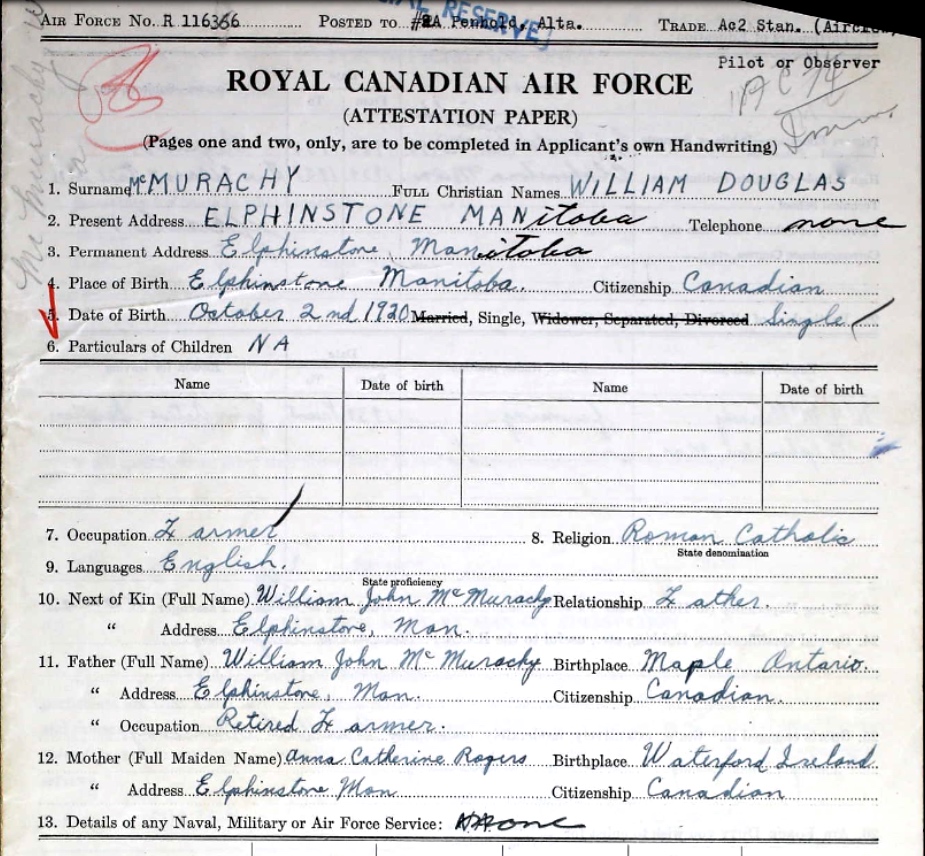 AIR FORCE No. R 116366 POSTED TO #2A Penhold, Alta. TRADE Ac2 Stan. (Aircrew,
RESERVE
Pilot or Observer
ROYAL CANADIAN AIR FORCE
(ATTESTATION PAPER)
(Pages one and two, only, are to be completed in Applicant's own Handwriting)
1. Surname McMURACHY FULL Christian Names WILLIAM DOUGLAS
2. Present Address ELPHINSTONE MANitoba Telephone none
3. Permanent Address Elphinstone, Manitoba
4. Place of Birth Elphinstone Manitoba. Citizenship Canadian
5. Date of Birth October 2nd 1920 Married, Single, Widower, Separated, Divorced Single
6. Particulars of Children NA
Name Date of birth Name Date of birth
7. Occupation Farmer 8. Religion Roman Catholic
State denomination
9. Languages English.
State proficiency
10. Next of Kin (Full Name) William John McMurachy Relationship Father.
" Address Elphinstone, Man.
11. Father (Full Name) William John McMurachy Birthplace Maple Ontario.
" Address Elphinstone, Man. Citizenship Canadian.
" Occupation Retired Farmer.
12. Mother (Full Maiden Name) Anna Catherine Rogers Birthplace Waterford Ireland
" Address Elphinstone Man Citizenship Canadian
13. Details of any Naval, Military or Air Force Service: None